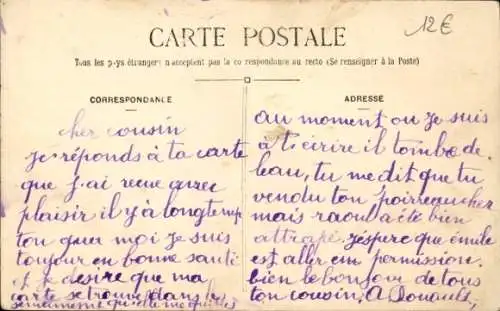 12€
CARTE POSTALE
Tous les pays étrangers n'acceptent pas la correspondance au recto (Se renseigner à la Poste)
CORRESPONDANCE
cher cousin
je réponds à ta carte
que j'ai recue avec
plaisir il y à longtemp
ton quer moi je suis
toujour en bonne santé
et je desire que ma
carte se trouve dans le
ADRESSE
au moment ou je suis
à t'écrire il tombe de
leau, tu me dit que tu
vendu ton poirreau cher
mais raoul a été bien
attrapé. j'espere que émile
est aller em permission.
bien le bonjour de tous
ton cousin, A